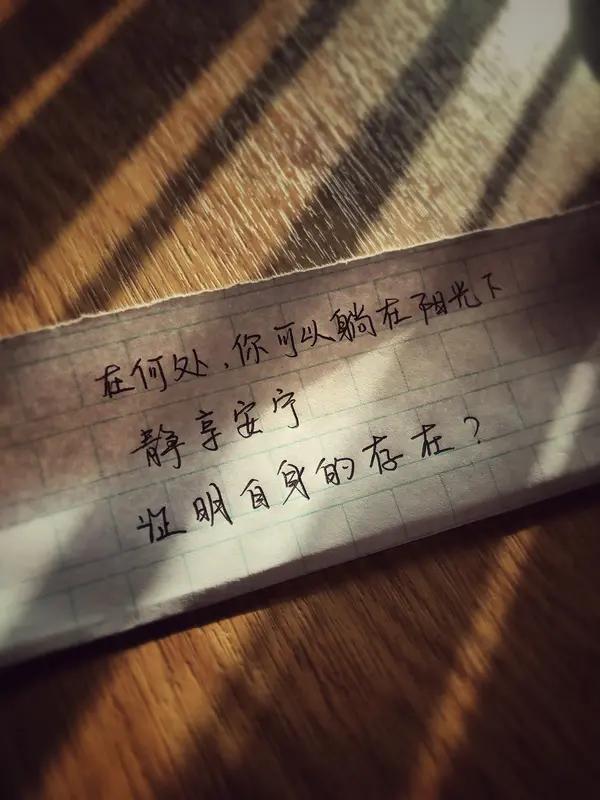 在何处，你可以躺在阳光下
静享安宁
证明自身的存在？